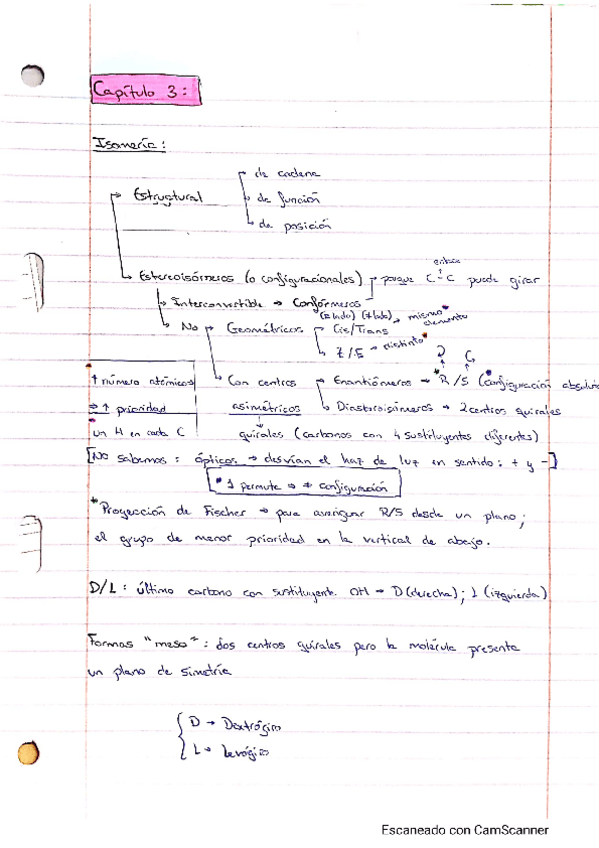 Capítulo 3:
Isomería:
de cadena
Estructural de función
de posición
enlace
Estereoisómeros (o configuracionales) porque C-C puede girar
Interconvertible → Confórmeros
(= lado) (≠ lado) → mismo elemento
No Geométricos Cis/Trans
Z/E → distinto
↑ número atómico Con centros Enantiómeros → R/S (configuración absoluta
⇒ ↑ prioridad asimétricos Diastereoisómeros → 2 centros quirales
un H en cada C quirales (carbonos con 4 sustituyentes diferentes)
[No sabemos: ópticos → desvían el haz de luz en sentido: + y -]
* 1 permuta → ≠ configuración
*Proyección de Fischer → para averiguar R/S desde un plano;
el grupo de menor prioridad en la vertical de abajo.
D/L: último carbono con sustituyente OH → D (derecha); L (izquierda)
Formas "meso": dos centros quirales pero la molécula presenta
un plano de simetría
D → Dextrógiro
L → Levógiro
Escaneado con CamScanner